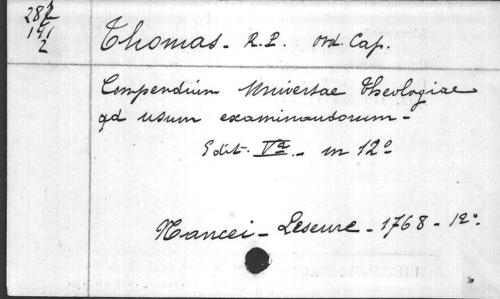 282
191
2
Thomas - R.P. Ord. Cap.
Compendium Universae Theologiae
ad usum examinandorum -
Edit. Va. - in 12º
Nancei - Leseure - 1768 - 12º.